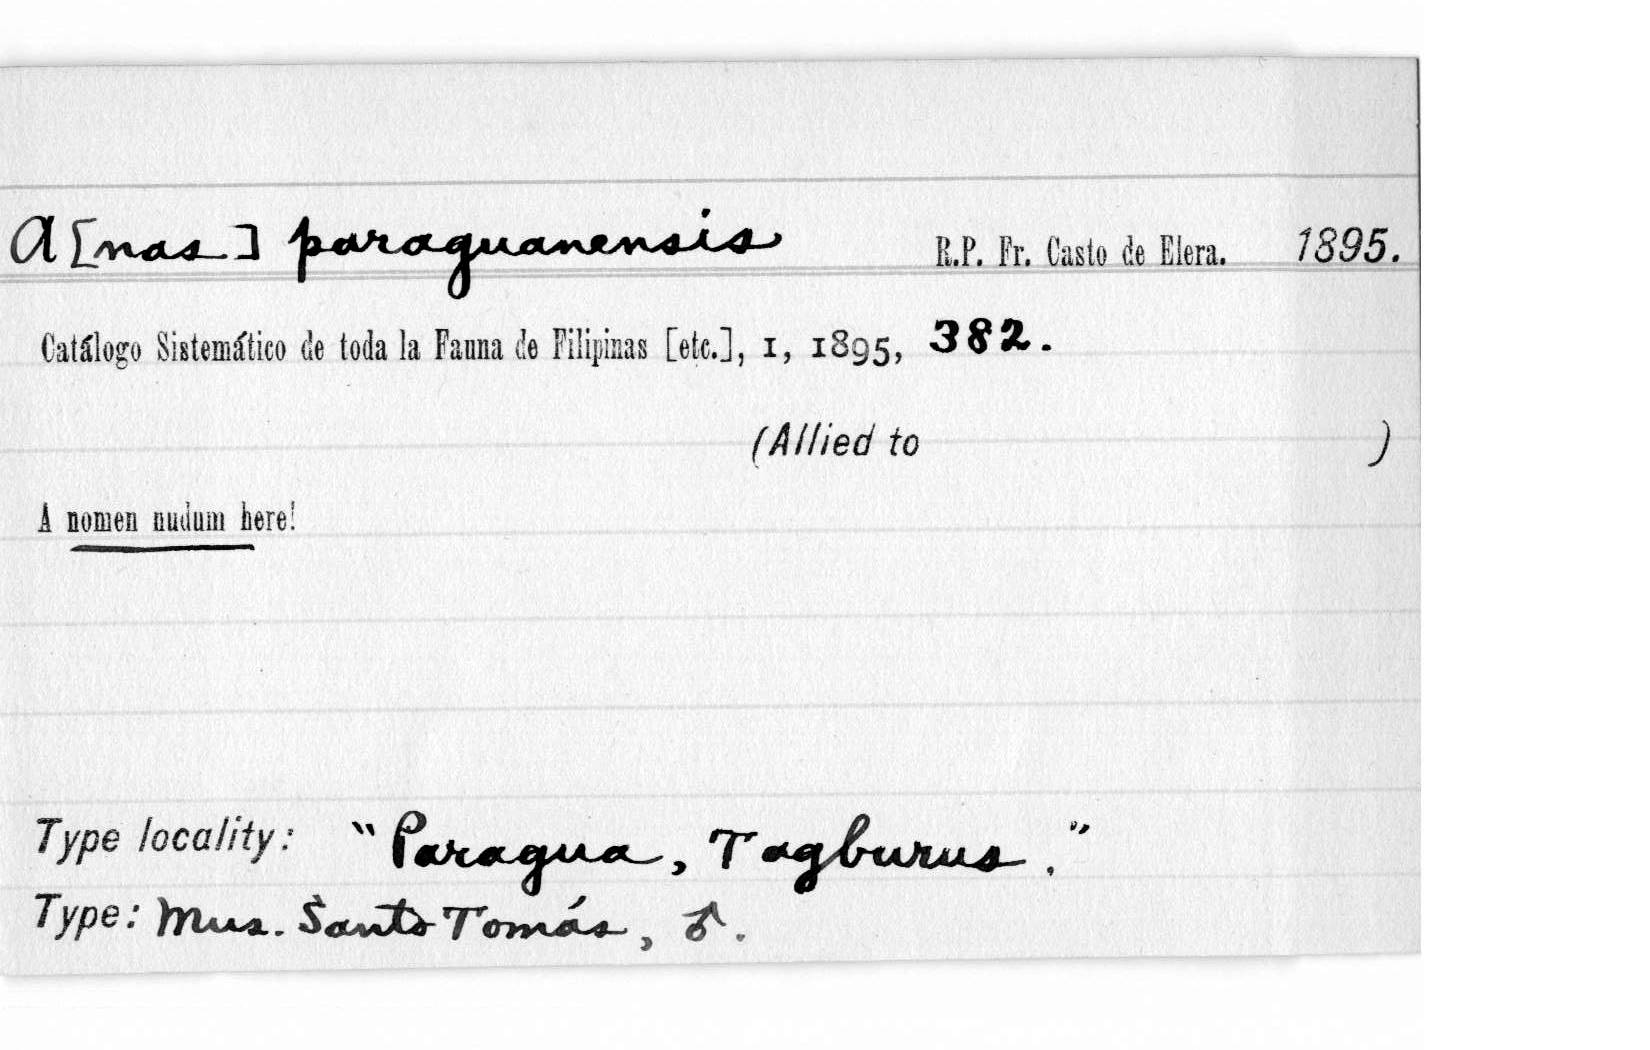 A[nas] paraguanensis R.P. Fr. Casto de Elera. 1895.
Catálogo Sistemático de toda la Fauna de Filipinas [etc.], 1, 1895, 382.
(Allied to )
A nomen nudum here!
Type locality: "Paragua, Tagburus."
Type: Mus. Santo Tomás, ♂.